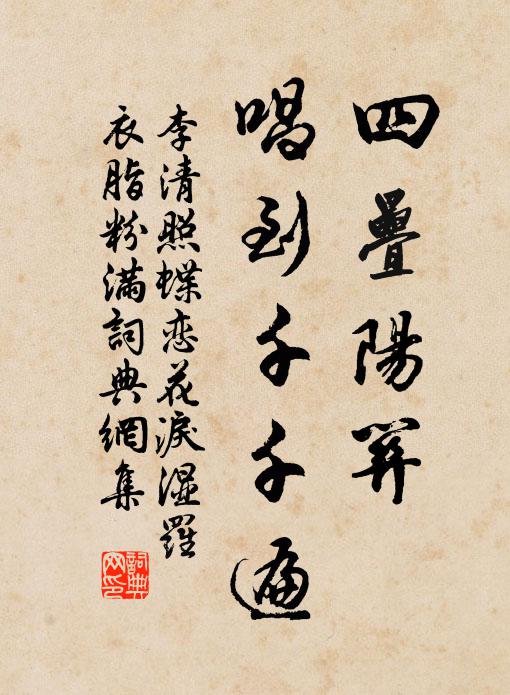 四疊陽關
唱到千千遍
李清照蝶恋花淚濕羅
衣脂粉滿詞典網集
詞典
网印